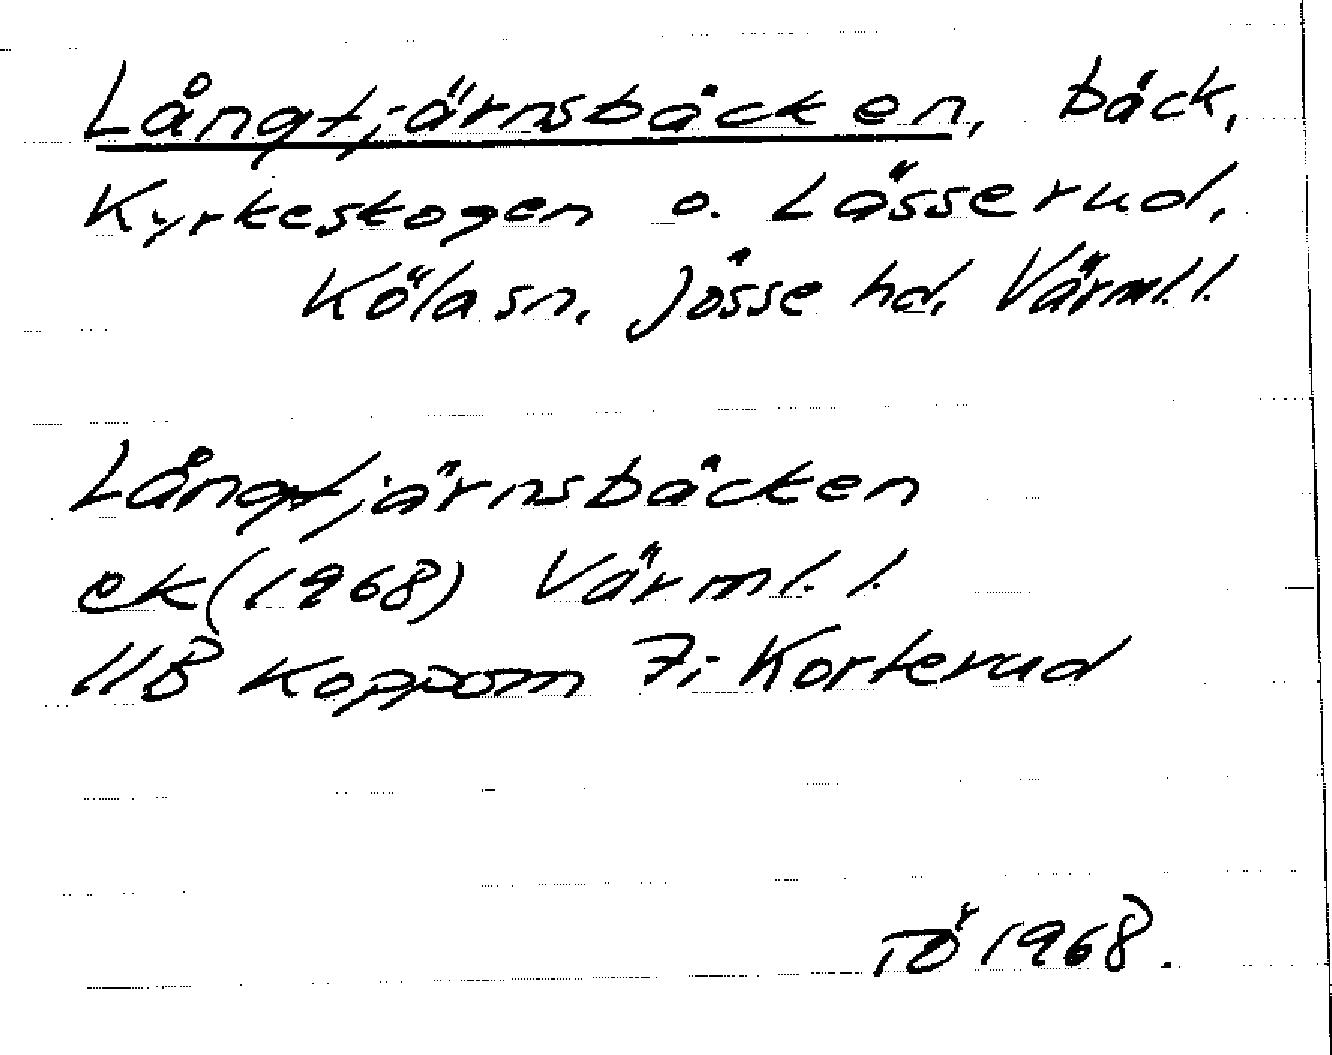 Långtjärnsbäcken, bäck,
Kyrkeskogen o. Lässerud,
Köla sn, Jösse hd, Värml. l.
Långtjärnsbäcken
ek (1968) Värml. l.
11B Koppom 7i Korterud
TÖ 1968.